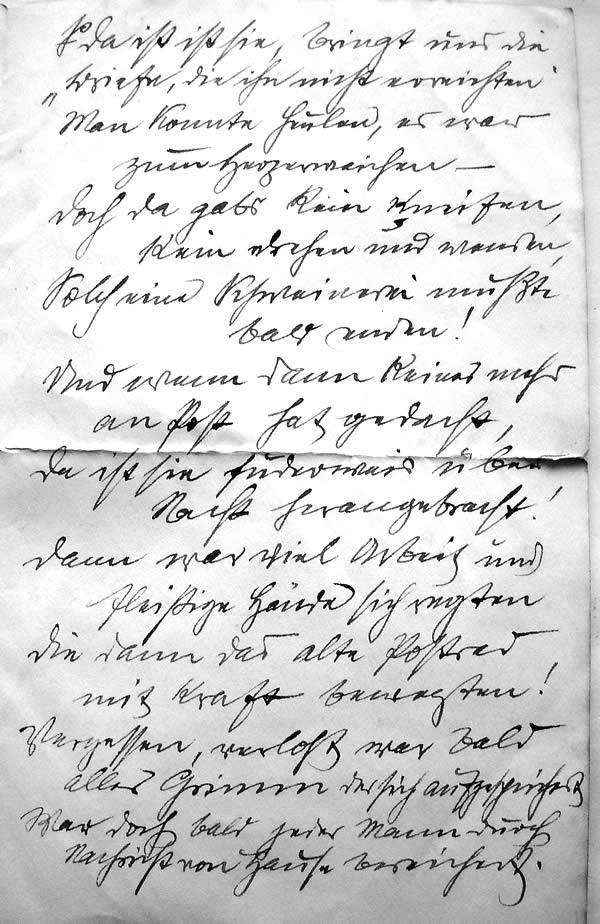 da ist ist sie, bringt uns die
"Briefe, die ihn nicht erreichten"
Man konnte heulen, es war
zum Herzerweichen —
Doch da gabs kein Kneifen,
kein drehen und wenden,
Solch eine Schweinerei mußte
bald enden!
Und wenn dann keiner mehr
an Post hat gedacht,
da ist sie fuderweis über
Nacht herangebracht!
Dann war viel Arbeit und
fleißige Hände sich regten
die dann das alte Postrad
mit Kraft bewegten!
Vergessen, verlöst war bald
aller Grimm der sich aufgespeichert
War doch bald jeder Mann durch
Nachricht von Hause bereichert.